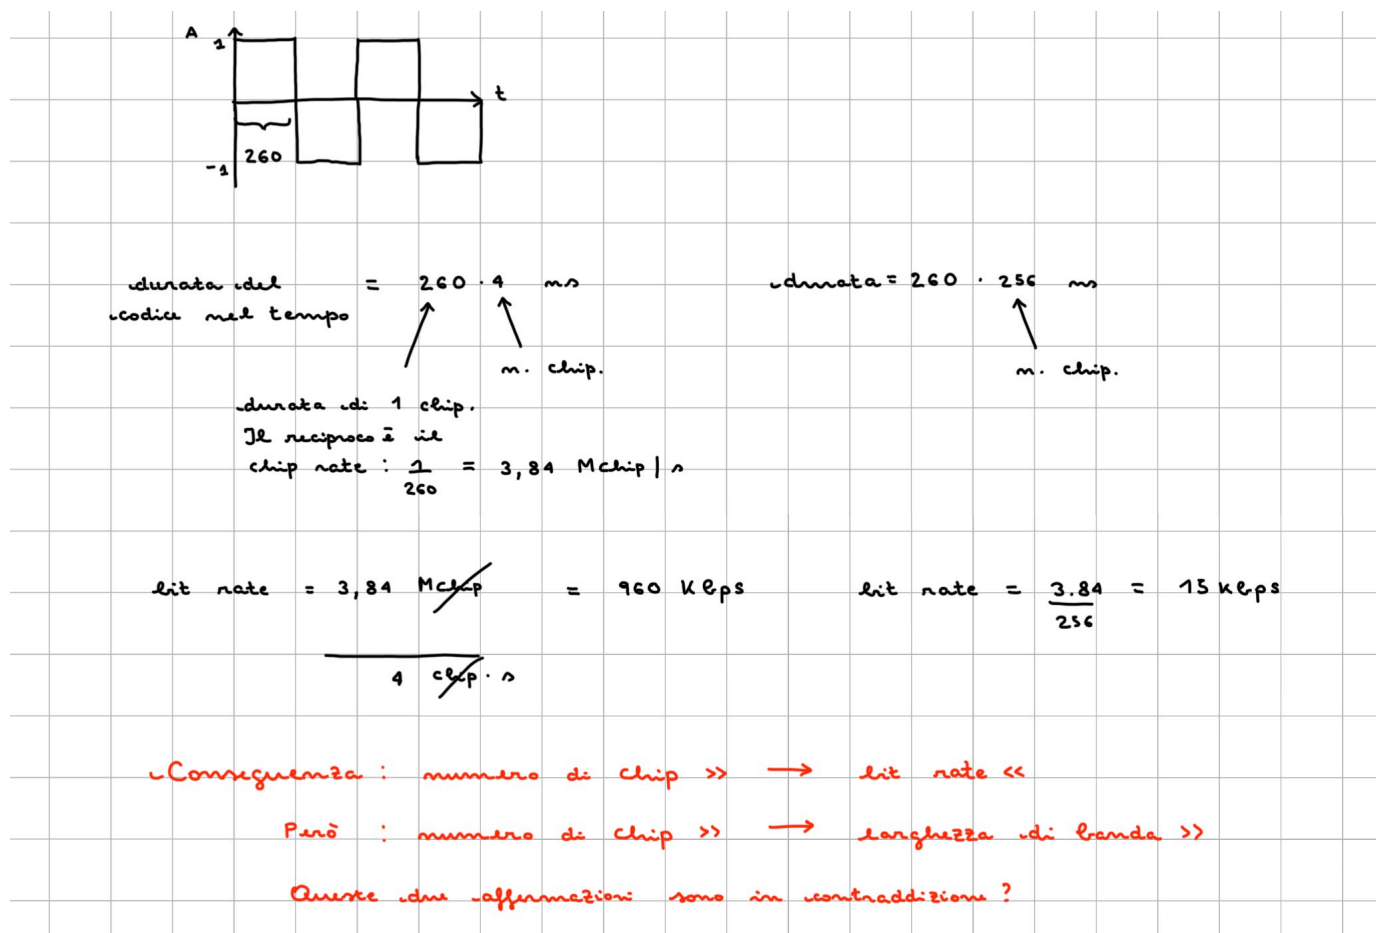 A
1
t
260
-1
durata del = 260 · 4 ns
codice nel tempo
n. chip.
durata di 1 chip.
Il reciproco è il
chip rate : 1/260 = 3,84 Mchip/s
durata = 260 · 256 ns
n. chip.
bit rate = 3,84 Mchip / 4 chip · s = 960 Kbps
bit rate = 3.84/256 = 15 Kbps
Conseguenza : numero di chip >> → bit rate <<
Però : numero di chip >> → larghezza di banda >>
Queste due affermazioni sono in contraddizione ?